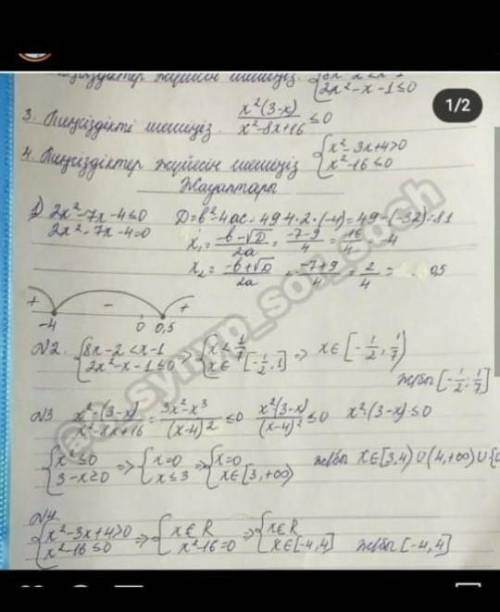 2x²-x-1≤0
1/2
3. Теңсіздікті шешіңіз. x²(3-x)/x²-8x+16 ≤0
4. Теңсіздіктер жүйесін шешіңіз {x²-3x+4>0
x²-16≤0
Жауаптары
1) 2x²-7x-4≤0 D=b²-4ac=49-4·2·(-4)=49-(-32)=81
2x²-7x-4=0 x₁=-b-√D/2a=-7-9/4=-16/4=-4
x₂=-b+√D/2a=-7+9/4=2/4=0,5
+ - +
-4 0 0,5
N2. {8x-2<x-1 => {x<1/7 => x∈[-1/2;1/7)
2x²-x-1≤0 x∈[-1/2;1]
жбы [-1/2;1/7)
N3 x²-(3-x)/x²-8x+16=3x²-x³/(x-4)²≤0 x²(3-x)/(x-4)²≤0 x²·(3-x)≤0
{x²≤0 => {x=0 => {x=0 жбы x∈[3,4)∪(4,+∞)∪{0
3-x≥0 x≤3 x∈[3,+∞)
N4.
{x²-3x+4>0 => {x∈R => {x∈R
x²-16≤0 x²-16=0 x∈[-4,4] жбы [-4,4]